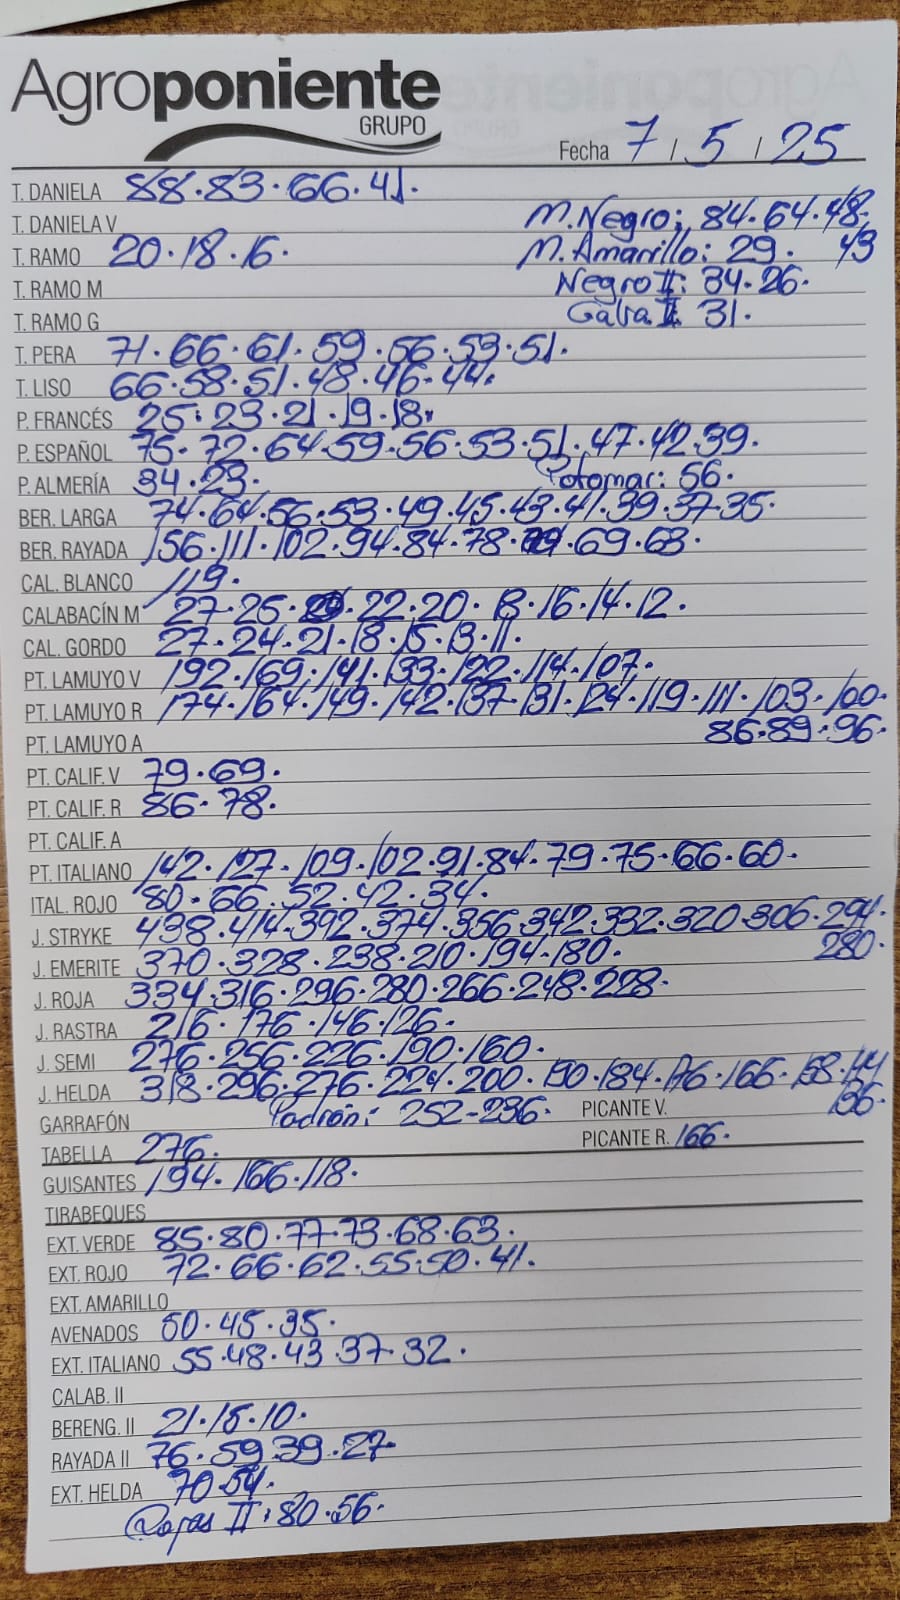 Agroponiente
GRUPO
Fecha 7 / 5 / 25
T. DANIELA 88·83·66·41·
T. DANELA V M. Negro: 84·64·48·
T. RAMO 20·18·16· M. Amarillo: 29· 43
T. RAMO M Negro II: 34·26·
T. RAMO G Calva II 31·
T. PERA 71·66·61·59·56·53·51·
T. LISO 66·58·51·48·46·44·
P. FRANCÉS 25·23·21·19·18·
P. ESPAÑOL 75·72·64·59·56·53·51·47·42·39·
P. ALMERÍA 34·23· Potomar: 56·
BER. LARGA 74·64·56·53·49·45·43·41·39·37·35·
BER. RAYADA 156·111·102·94·84·78· ·69·63·
CAL. BLANCO 119·
CALABACÍN M 27·25· ·22·20·18·16·14·12·
CAL. GORDO 27·24·21·18·15·13·11·
PT. LAMUYO V 192·169·141·133·122·114·107·
PT. LAMUYO R 174·164·149·142·137·131·124·119·111·103·100·
PT. LAMUYO A 86·89·96·
PT. CALIF. V 79·69·
PT. CALIF. R 86·78·
PT. CALIF. A
PT. ITALIANO 142·127·109·102·91·84·79·75·66·60·
ITAL. ROJO 80·66·52·42·34·
J. STRYKE 438·414·392·374·356·342·332·320·306·294·
J. EMERITE 370·328·238·210·194·180· 280·
J. ROJA 334·316·296·280·266·248·228·
J. RASTRA 216·176·146·126·
J. SEMI 276·256·226·190·160·
J. HELDA 318·296·276·224·200·190·184·176·166·158·144
GARRAFÓN Padrón: 252-236· PICANTE V. 136·
TABELLA 276· PICANTE R. 166·
GUISANTES 194·166·118·
TIRABEQUES
EXT. VERDE 85·80·77·73·68·63·
EXT. ROJO 72·66·62·55·50·41·
EXT. AMARILLO
AVENADOS 50·45·35·
EXT. ITALIANO 55·48·43·37·32·
CALAB. II
BERENG. II 21·15·10·
RAYADA II 76·59·39·27·
EXT. HELDA 70·54·
Rojas II: 80·56·